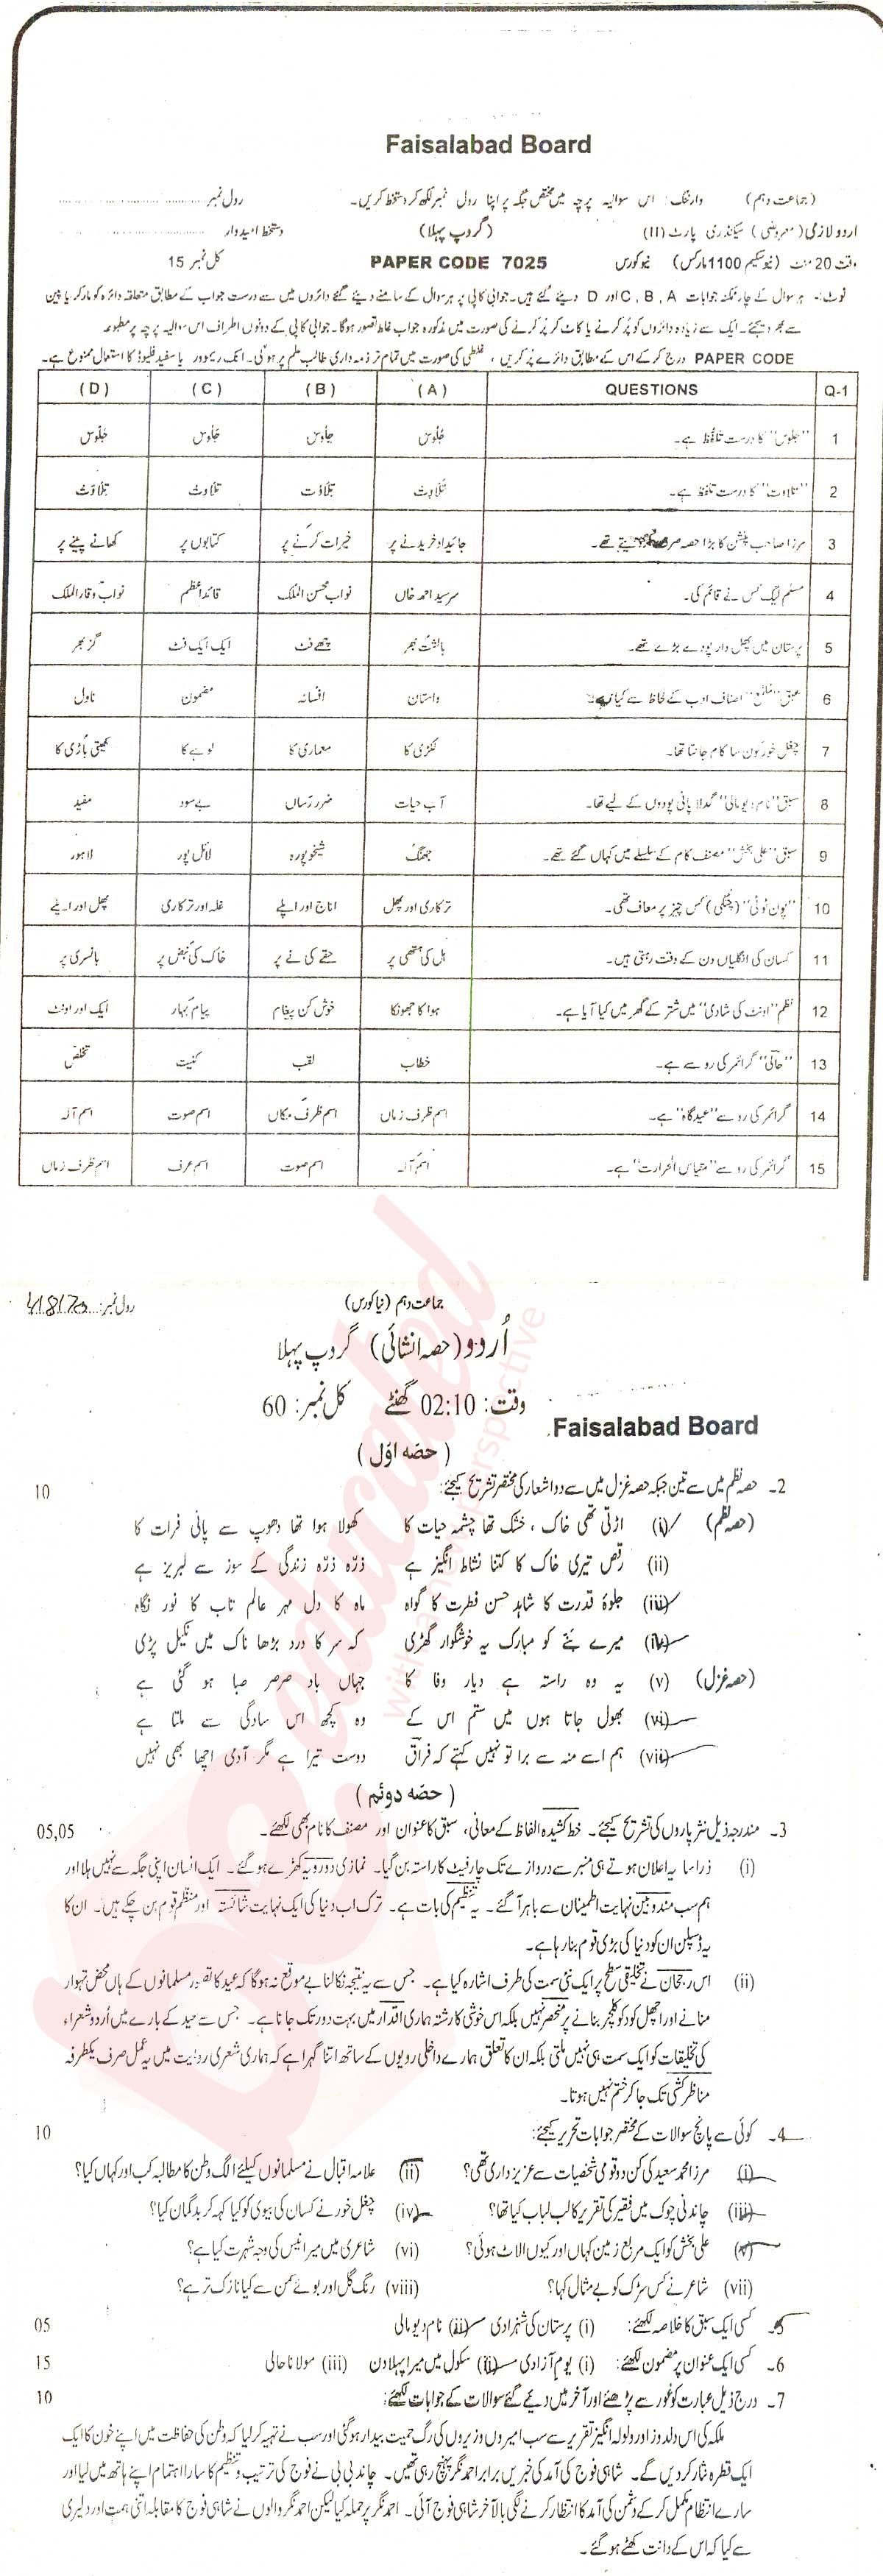 Faisalabad Board
(جماعت دہم) وارننگ: اس سوالیہ پرچہ میں مختص جگہ پر اپنا رول نمبر لکھ کر دستخط کریں۔ رول نمبر
اردو لازمی (معروضی) سیکنڈری پارٹ (II) (گروپ پہلا) دستخط امیدوار
وقت 20 منٹ (نیو سکیم 1100 مارکس) نیو کورس PAPER CODE 7025 کل نمبر 15
نوٹ:- ہر سوال کے چار ممکنہ جوابات A , B , C اور D دیئے گئے ہیں۔ جوابی کاپی پر ہر سوال کے سامنے دیئے گئے دائروں میں سے درست جواب کے مطابق متعلقہ دائرہ کو مارکر یا پین
سے بھر دیجئے۔ ایک سے زیادہ دائروں کو پُر کرنے یا کاٹ کر پُر کرنے کی صورت میں مذکورہ جواب غلط تصور ہوگا۔ جوابی کاپی کے دونوں اطراف اس سوالیہ پرچہ پر مطبوعہ
PAPER CODE درج کر کے اس کے مطابق دائرے پُر کریں ، غلطی کی صورت میں تمام تر ذمہ داری طالب علم پر ہوگی۔ انک ریموور یا سفید فلیوڈ کا استعمال ممنوع ہے۔
Q-1 QUESTIONS (A) (B) (C) (D)
1 "جلوس" کا درست تلفظ ہے۔
2 "تلاوت" کا درست تلفظ ہے۔
3 مرزا صاحب پنشن کا بڑا حصہ تھے۔ جائیداد خریدنے پر خیرات کرنے پر کتابوں پر کھانے پینے پر
4 مسلم لیگ کس نے قائم کی۔ سرسید احمد خاں نواب محسن الملک قائداعظم نواب وقار الملک
5 پرستان میں پھل دار پودے بڑے تھے۔ بالشت بھر چھے فٹ ایک ایک فٹ گز بھر
6 اصناف ادب کے لحاظ سے کیا ہے داستان افسانہ مضمون ناول
7 چغل خور کون سا کام جانتا تھا۔ لکڑی کا معماری کا لوہے کا کھیتی باڑی کا
8 سبق "نام دیو مالی" گدلا پانی پودوں کے لیے تھا۔ آب حیات ضرر رساں بے سود مفید
9 سبق "علی بخش" مصنف کام کے سلسلے میں کہاں گئے تھے۔ جھنگ شیخوپورہ لائل پور لاہور
10 "پون ٹوٹی" (چنگی) کس چیز پر معاف تھی۔ ترکاری اور پھل اناج اور اپلے غلہ اور ترکاری پھل اور اپلے
11 کسان کی انگلیاں دن کے وقت رہتی ہیں۔ ہل کی ہتھی پر حقے کی نے پر خاک کی نبض پر بانسری پر
12 نظم "اونٹ کی شادی" میں شتر کے گھر میں کیا آیا ہے۔ ہوا کا جھونکا خوش کن پیغام پیام بہار ایک اور اونٹ
13 "حالی" گرائمر کی رو سے ہے۔ خطاب لقب کنیت تخلص
14 گرائمر کی رو سے "عیدگاہ" ہے۔ اسم ظرف زماں اسم ظرف مکاں اسم صوت اسم آلہ
15 گرائمر کی رو سے "مقیاس الحرارت" ہے۔ اسم آلہ اسم صوت اسم عرف اسم ظرف زماں
جماعت دہم (نیا کورس) رول نمبر:
اُردو (حصہ انشائی) گروپ پہلا
وقت: 02:10 گھنٹے کل نمبر: 60
Faisalabad Board
(حصہ اوّل)
2۔ حصہ نظم میں سے تین جبکہ حصہ غزل میں سے دو اشعار کی مختصر تشریح کیجئے: 10
(حصہ نظم) (i) اڑتی تھی خاک ، خشک تھا چشمہ حیات کا کھولا ہوا تھا دھوپ سے پانی فرات کا
(ii) رقص تیری خاک کا کتنا نشاط انگیز ہے ذرّہ ذرّہ زندگی کے سوز سے لبریز ہے
(iii) جلوۂ قدرت کا شاہد حسن فطرت کا گواہ ماہ کا دل مہر عالم تاب کا نور نگاہ
(iv) میرے بنّے کو مبارک یہ خوشگوار گھڑی کہ سر کا درد بڑھا ناک میں نکیل پڑی
(حصہ غزل) (v) یہ وہ راستہ ہے دیار وفا کا جہاں باد صرصر صبا ہو گئی ہے
(vi) بھول جاتا ہوں میں ستم اس کے وہ کچھ اس سادگی سے ملتا ہے
(vii) ہم اسے منہ سے برا تو نہیں کہتے کہ فراق دوست تیرا ہے مگر آدمی اچھا بھی نہیں
(حصہ دوئم)
3۔ مندرجہ ذیل نثر پاروں کی تشریح کیجئے۔ خط کشیدہ الفاظ کے معانی، سبق کا عنوان اور مصنف کا نام بھی لکھئے۔ 05,05
(i) ذرا سا یہ اعلان ہوتے ہی منبر سے دروازے تک چار فٹ کا راستہ بن گیا۔ نمازی دو رویہ کھڑے ہو گئے۔ ایک انسان اپنی جگہ سے نہیں ہلا اور
ہم سب مندوبین نہایت اطمینان سے باہر آ گئے۔ یہ تنظیم کی بات ہے۔ ترک اب دنیا کی ایک نہایت شائستہ اور منظم قوم بن چکے ہیں۔ ان کا
یہ ڈسپلن ان کو دنیا کی بڑی قوم بنا رہا ہے۔
(ii) اس رجحان نے تخلیقی سطح پر ایک نئی سمت کی طرف اشارہ کیا ہے۔ جس سے یہ نتیجہ نکالنا بے موقع نہ ہوگا کہ عید کا تصور مسلمانوں کے ہاں محض تہوار
منانے اور اچھل کود کو کلچر بنانے پر منحصر نہیں بلکہ اس خوشی کا رشتہ ہماری اقدار میں بہت دور تک جاتا ہے۔ جس سے عید کے بارے میں اُردو شعراء
کی تخلیقات کو ایک سمت ہی نہیں ملتی بلکہ ان کا تعلق ہمارے داخلی رویوں کے ساتھ اتنا گہرا ہے کہ ہماری شعری روایت میں یہ عمل صرف یکطرفہ
مناظر کشی تک جا کر ختم نہیں ہوتا۔
4۔ کوئی سے پانچ سوالات کے مختصر جوابات تحریر کیجئے: 10
(i) مرزا محمد سعید کی کن دو قومی شخصیات سے عزیز داری تھی؟ (ii) علامہ اقبال نے مسلمانوں کیلئے الگ وطن کا مطالبہ کب اور کہاں کیا؟
(iii) چاندنی چوک میں فقیر کی تقریر کا لب لباب کیا تھا؟ (iv) چغل خور نے کسان کی بیوی کو کیا کہہ کر بدگمان کیا؟
(v) علی بخش کو ایک مربع زمین کہاں اور کیوں الاٹ ہوئی؟ (vi) شاعری میں میر انیس کی وجہ شہرت کیا ہے؟
(vii) شاعر نے کس سڑک کو بے مثال کہا؟ (viii) رنگ گل اور بوئے سمن سے کیا نازک تر ہے؟
5۔ کسی ایک سبق کا خلاصہ لکھئے: (i) پرستان کی شہزادی (ii) نام دیو مالی 05
6۔ کسی ایک عنوان پر مضمون لکھئے: (i) یوم آزادی (ii) سکول میں میرا پہلا دن (iii) مولانا حالی 15
7۔ درج ذیل عبارت کو غور سے پڑھئے اور آخر میں دیئے گئے سوالات کے جوابات لکھئے: 10
ملکہ کی اس دلدوز اور ولولہ انگیز تقریر سے سب امیروں وزیروں کی رگ حمیت بیدار ہو گئی اور سب نے تہیہ کر لیا کہ وطن کی حفاظت میں اپنے خون کا ایک
ایک قطرہ نثار کر دیں گے۔ شاہی فوج کی آمد کی خبریں برابر احمد نگر پہنچ رہی تھیں۔ چاند بی بی نے فوج کی ترتیب و تنظیم کا سارا اہتمام اپنے ہاتھ میں لیا اور
سارے انتظام مکمل کر کے دشمن کی آمد کا انتظار کرنے لگی بالآخر شاہی فوج آئی۔ احمد نگر پر حملہ کیا لیکن احمد نگر والوں نے شاہی فوج کا مقابلہ اتنی ہمت اور دلیری
سے کیا کہ اس کے دانت کھٹے ہو گئے۔
be educated
with a new perspective